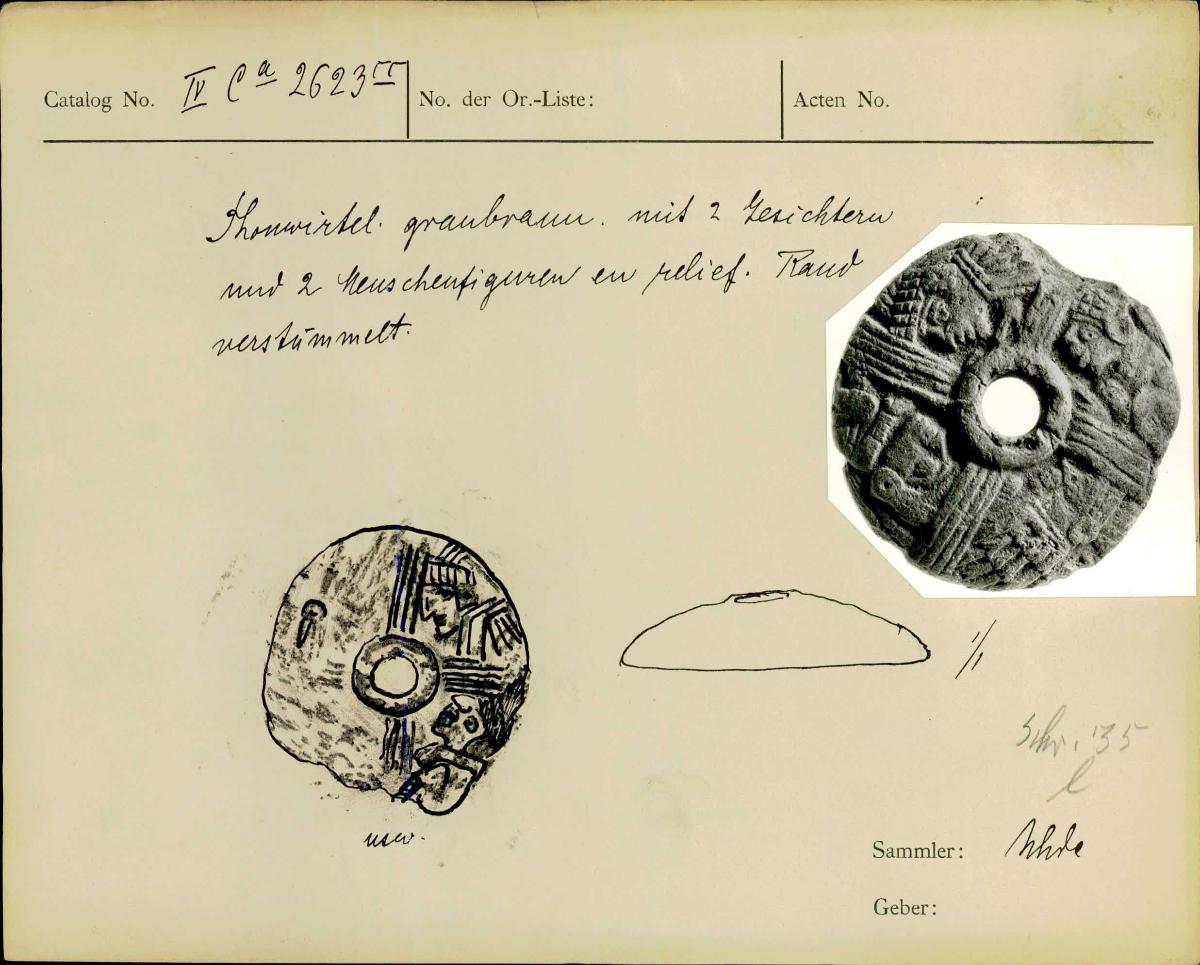 Catalog No. IV Ca 2623rr No. der Or.-Liste: Acten No.
Thonwirtel. graubraun. mit 2 Gesichtern
und 2 Menschenfiguren en relief. Rand
verstümmelt.
1/1
usw.
Schr. 35
l
Sammler: Uhde
Geber: